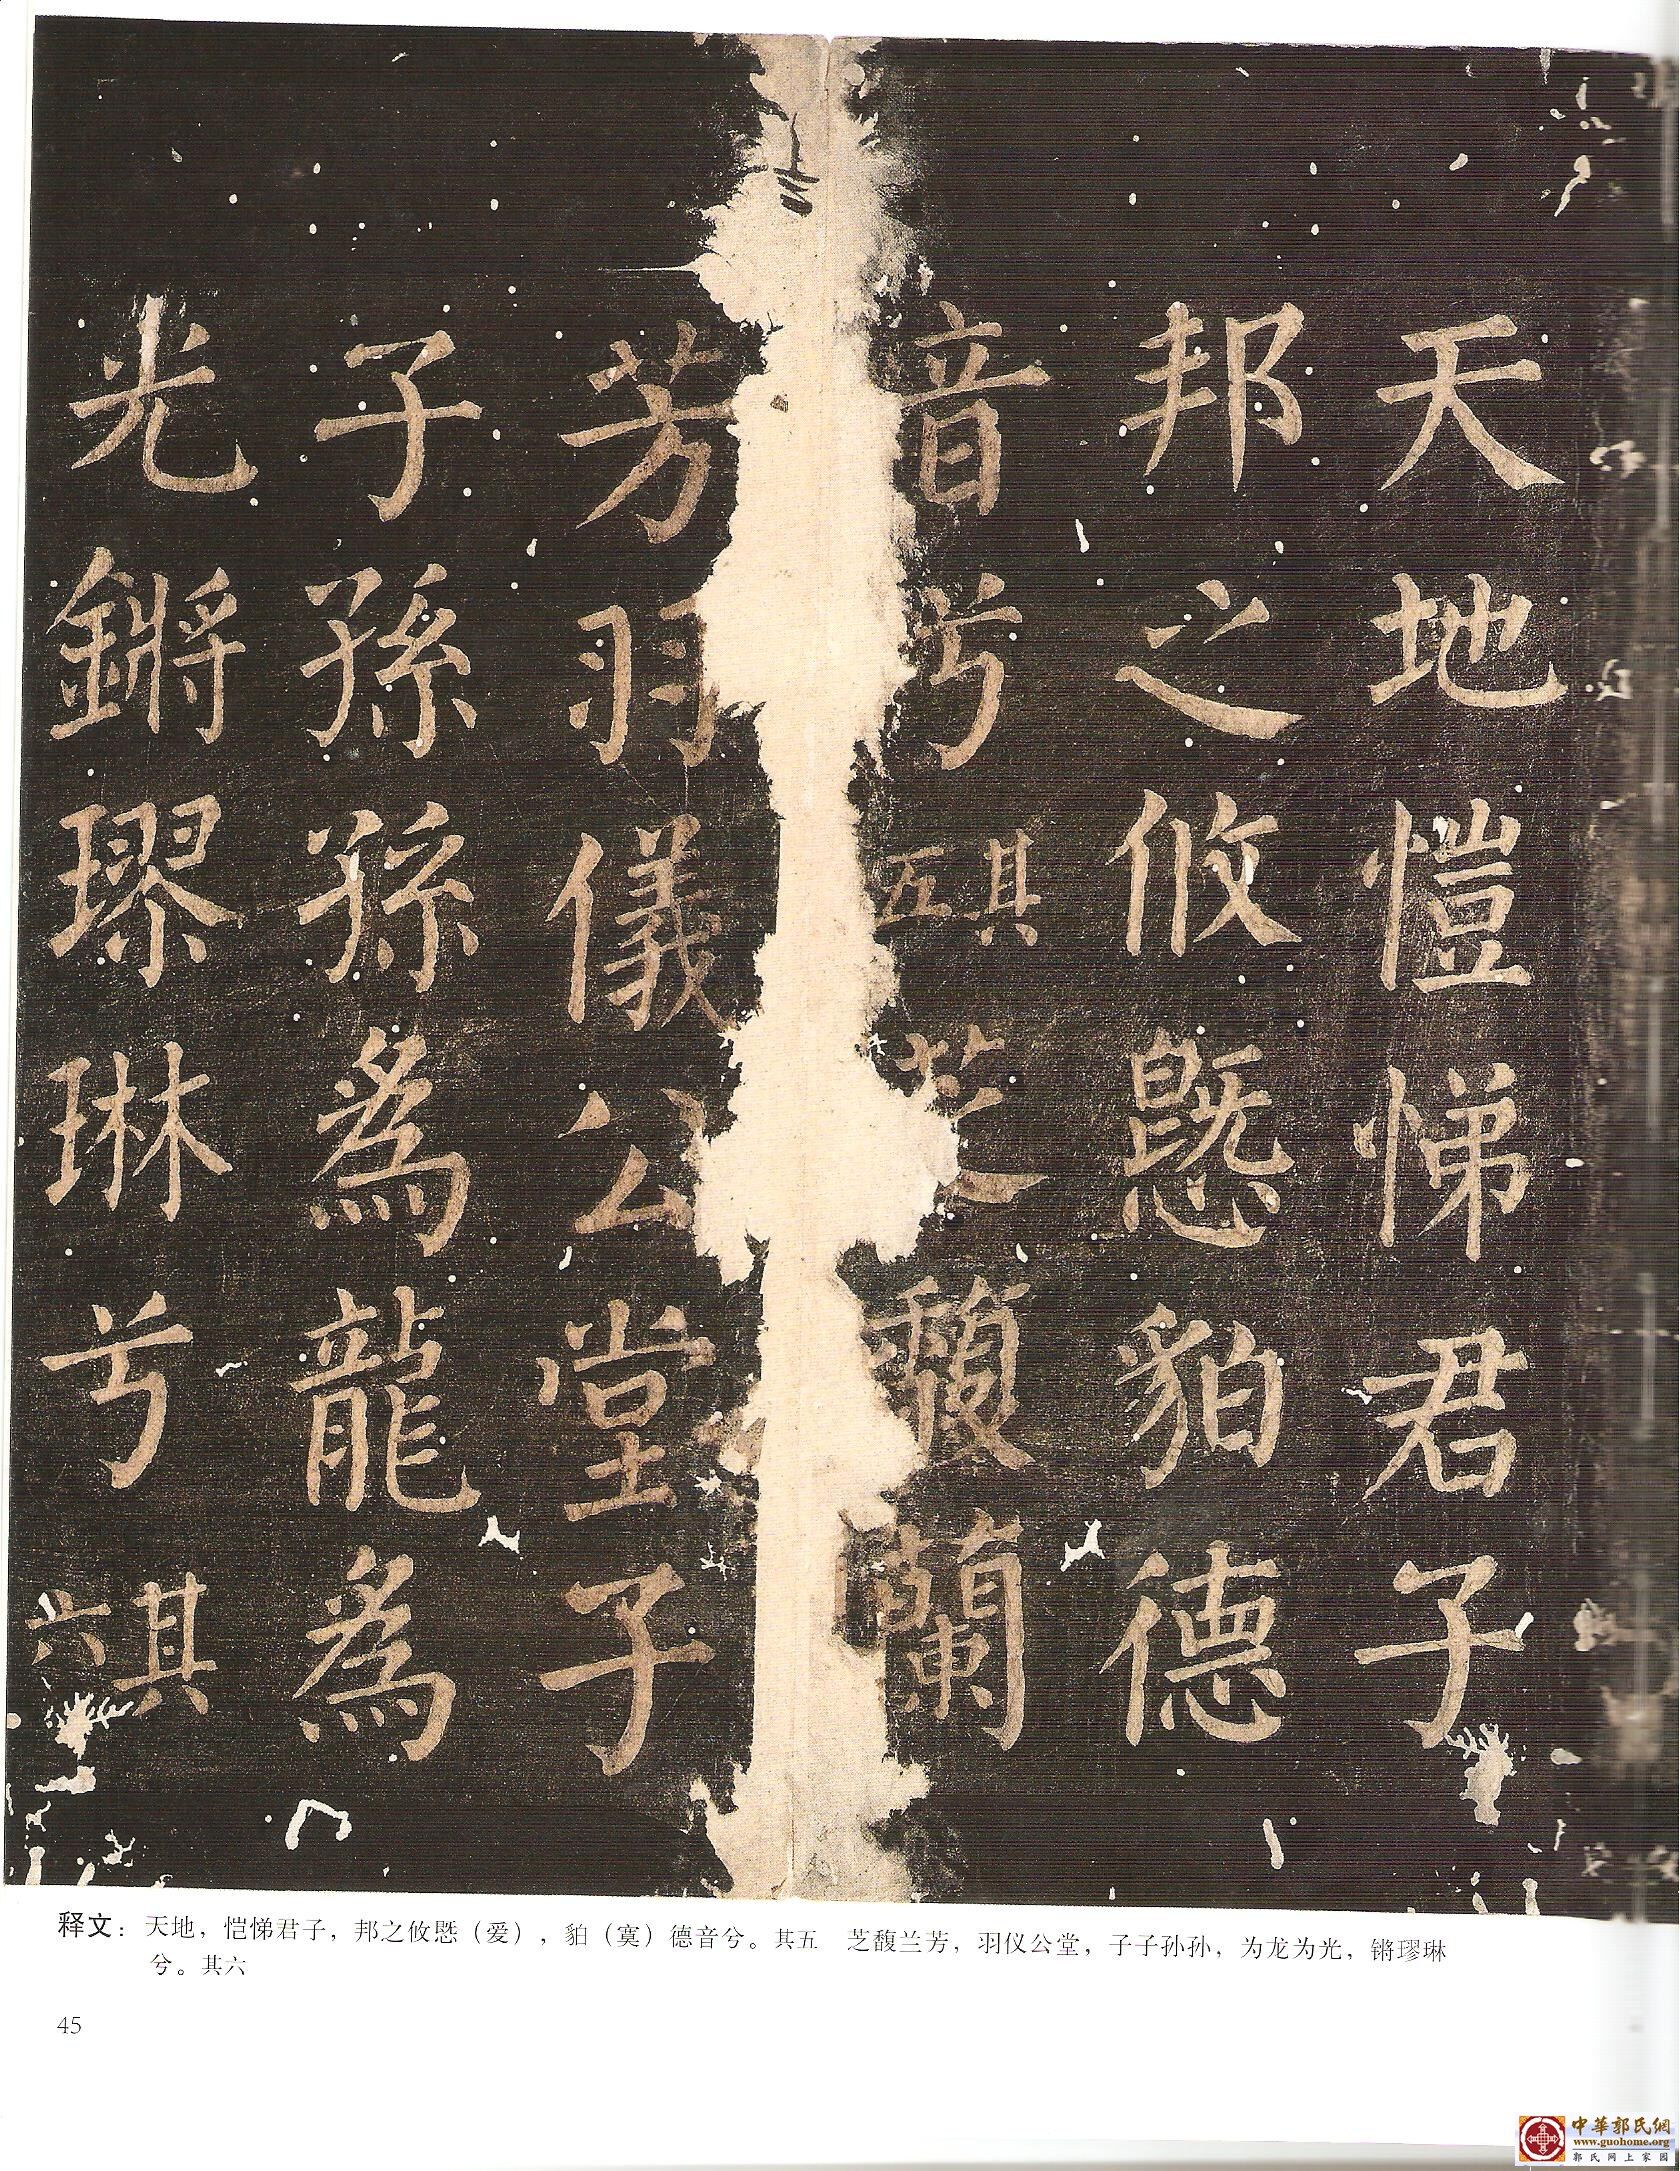 天地愷悌君子
邦之攸塈貃德
音兮其五芝馥蘭
芳羽儀公堂子
子孫孫為龍為
光鏘璆琳兮其六
释文：天地，恺悌君子，邦之攸塈（爱），貃（寞）德音兮。其五 芝馥兰芳，羽仪公堂，子子孙孙，为龙为光，锵璆琳
兮。其六
45
中華郭氏網
www.guohome.org
郭氏网上家园